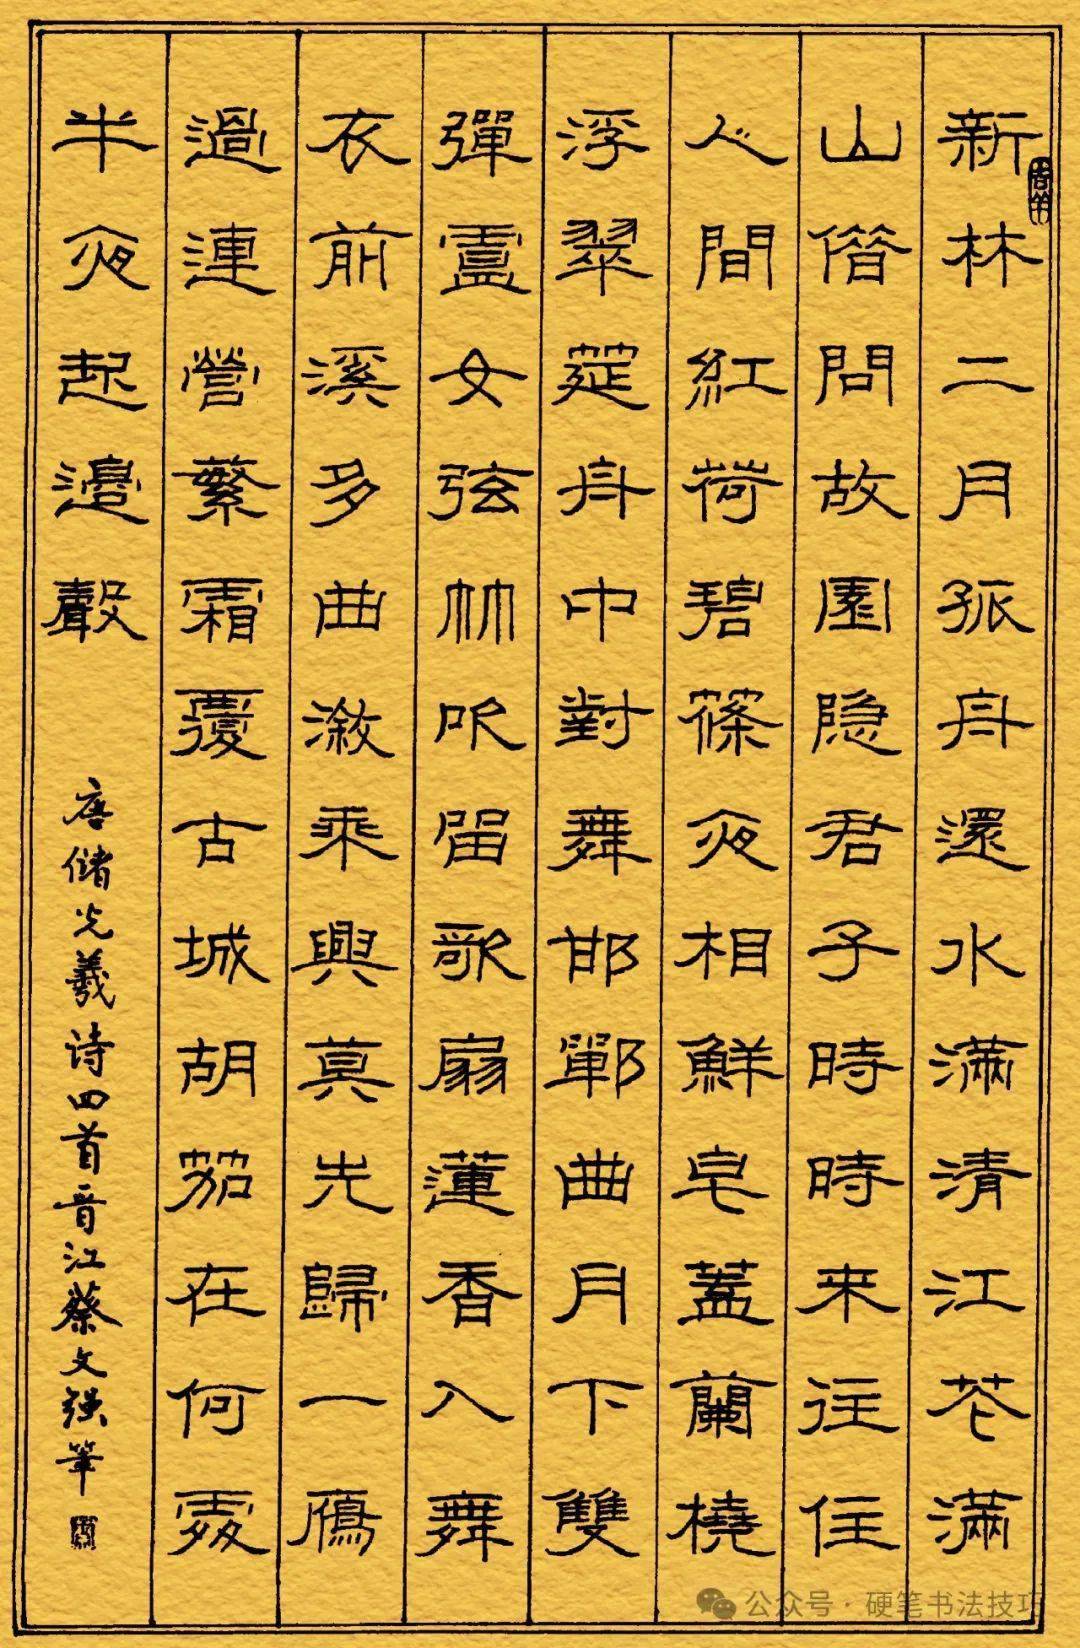 新林二月孤舟還水滿清江花滿
山借問故園隐君子時時來往住
人間紅荷碧篠夜相鮮皂蓋蘭橈
浮翠筵舟中對舞邯鄲曲月下雙
彈盧女弦竹吹留歌扇蓮香入舞
衣前溪多曲溆乘興莫先歸一雁
過連營繁霜覆古城胡笳在何處
半夜起邊聲
唐储光羲诗四首晋江蔡文强筆
公众号·硬笔书法技巧